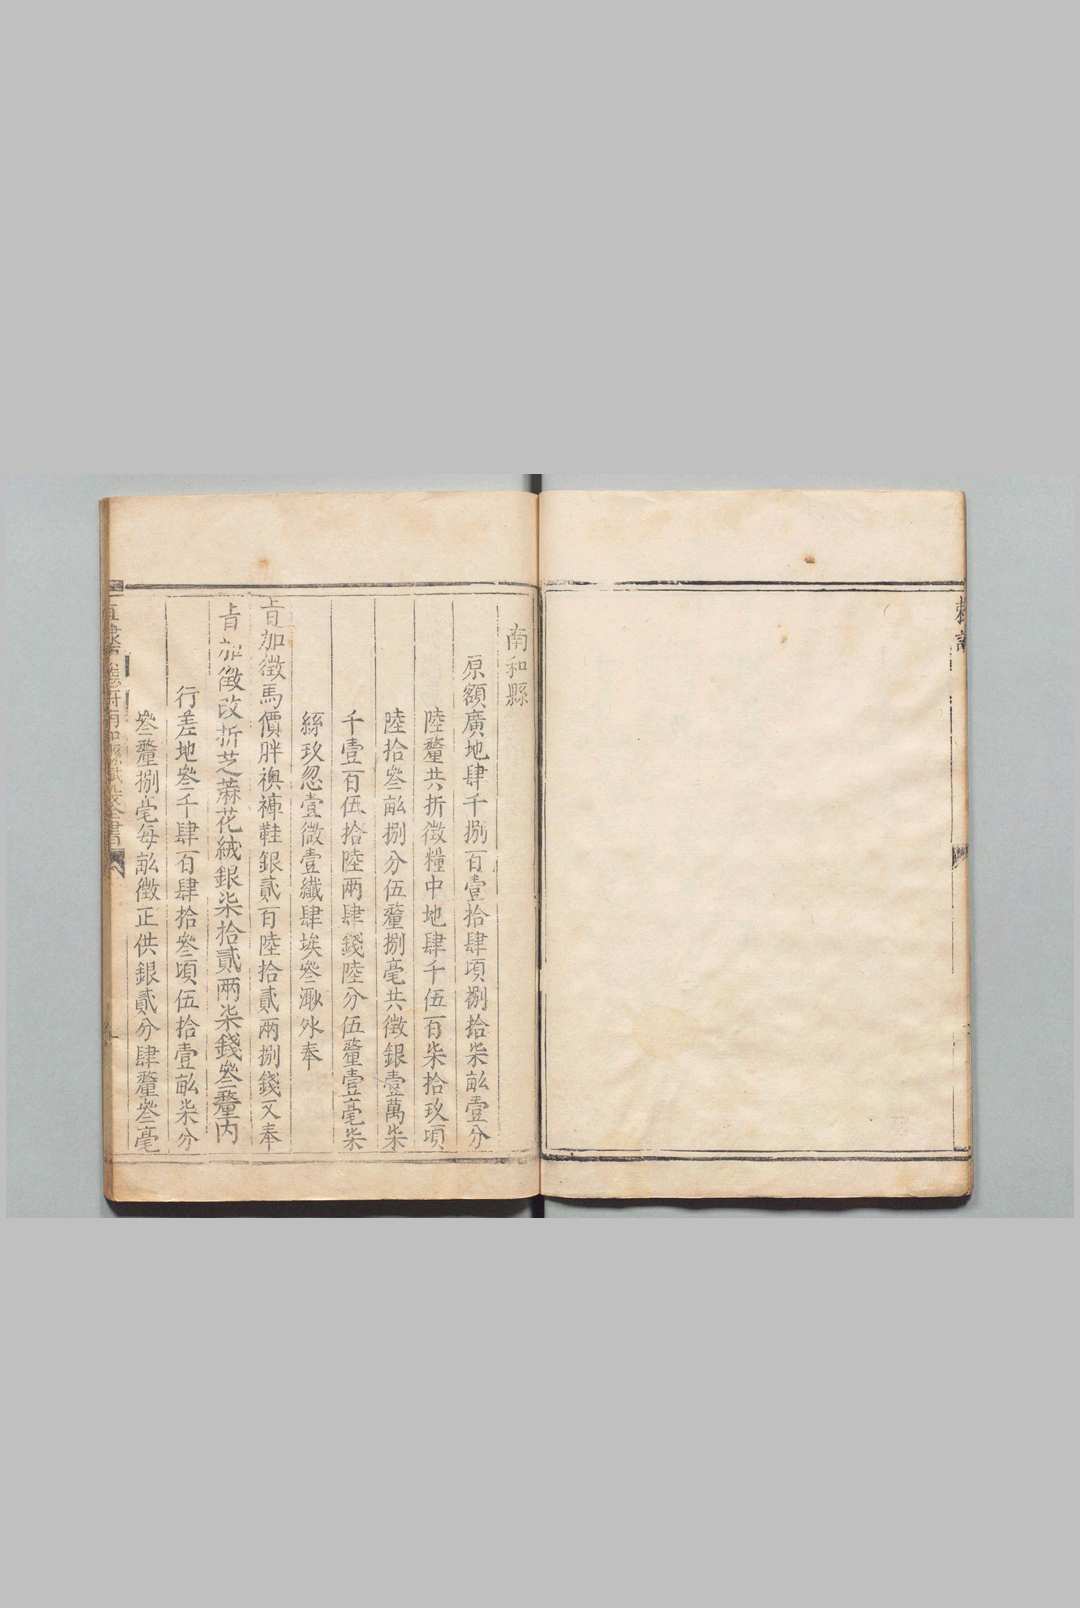 南和縣
原額廣地肆千捌百壹拾肆頃捌拾柒畝壹分
陸釐共折徵糧中地肆千伍百柒拾玖頃
陸拾叅畝捌分伍釐捌毫共徵銀壹萬柒
千壹百伍拾陸兩肆錢陸分伍釐壹毫柒
絲玖忽壹微壹纖肆埃叅溂外奉
旨加徵馬價胖襖褲鞋銀貳百陸拾貳兩捌錢又奉
旨加徵改折芝蔴花絨銀柒拾貳兩柒錢叅釐內
行差地叅千肆百肆拾叅頃伍拾壹畝柒分
叅釐捌毫每畝徵正供銀貳分肆釐叅毫